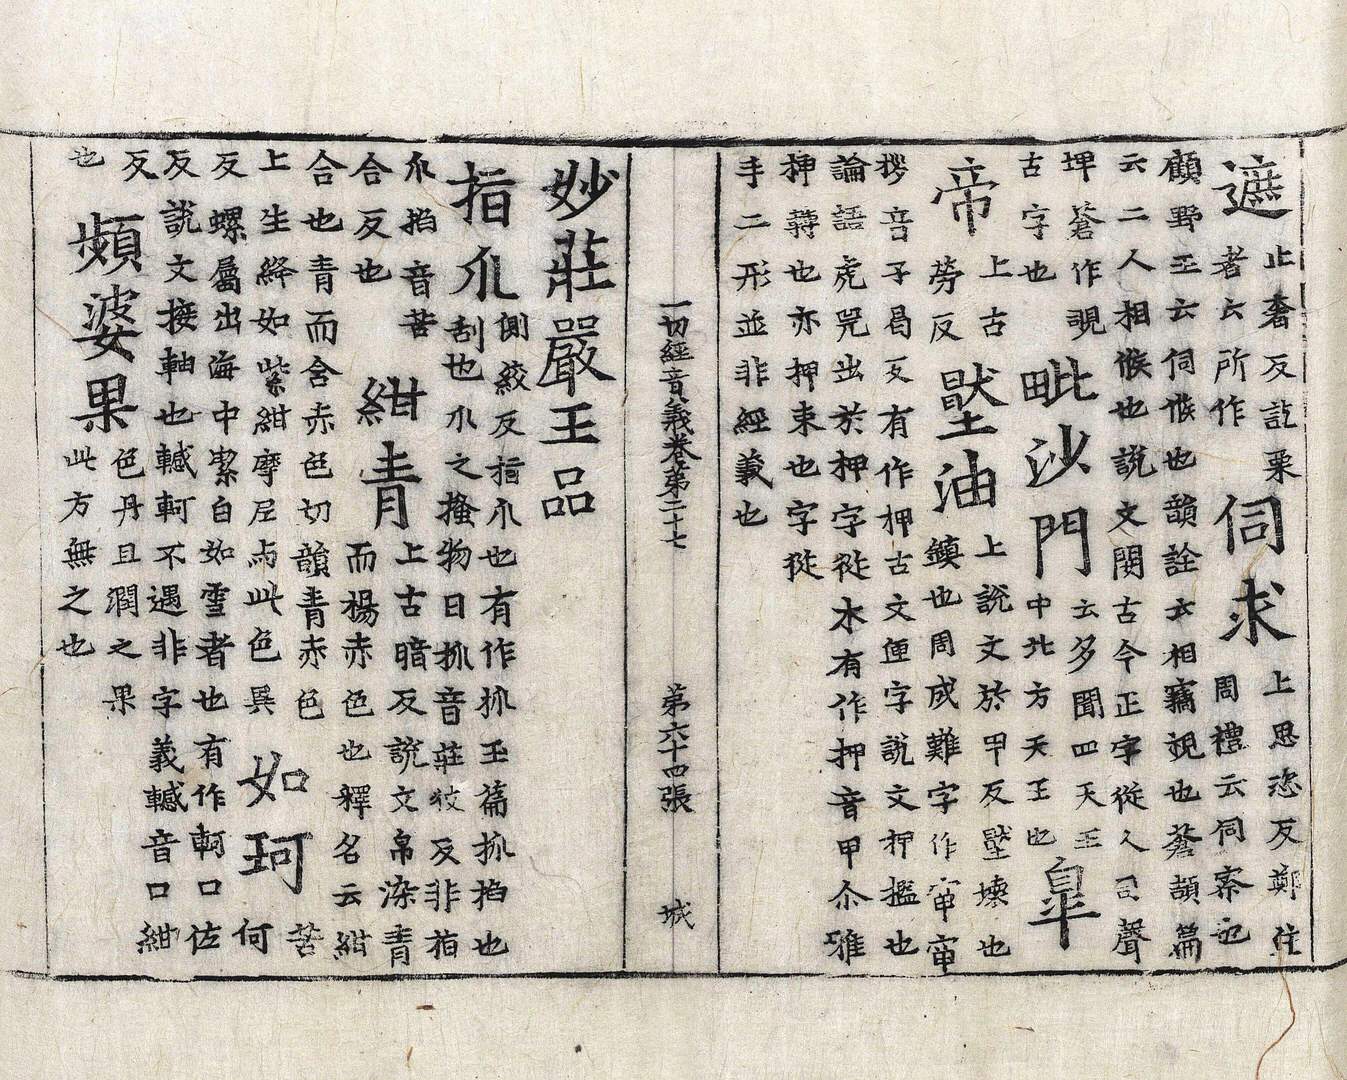 遮止奢反訖栗
者云所作伺求上思恣反鄭住
周禮云伺察也
顧野王云伺候也韻詮云相竊視也蒼頡篇
云二人相候也說文闕古今正字從人司聲
埤蒼作覗
古字也毗沙門云多聞四天王
中北方天王也皐
帝上古
勞反壓油上說文於甲反壓壞也
鎮也周成難字作窜窜
音子曷反有作押古文匣字說文押檻也
論語虎兕出於押字從木有作押音甲尒雅
押也亦押束也字從
手二形並非經義也
一切經音義卷第二十七 第六十四張 城
妙莊嚴王品
指爪側絞反指爪也有作抓玉篇抓掐也
刮也爪之搔物曰抓音莊狡反非指
爪掐音苦
合反也紺青上古暗反說文帛深青
而楊赤色也釋名云紺
合也青而含赤色切韻青赤色
上生絳如紫紺摩尼与此色異如珂苦
何
反螺屬出海中潔白如雪者也有作軻口佐
反說文接軸也轗軻不遇非字義轗音口紺
反
也頻婆果色丹且潤之果
此方無之也